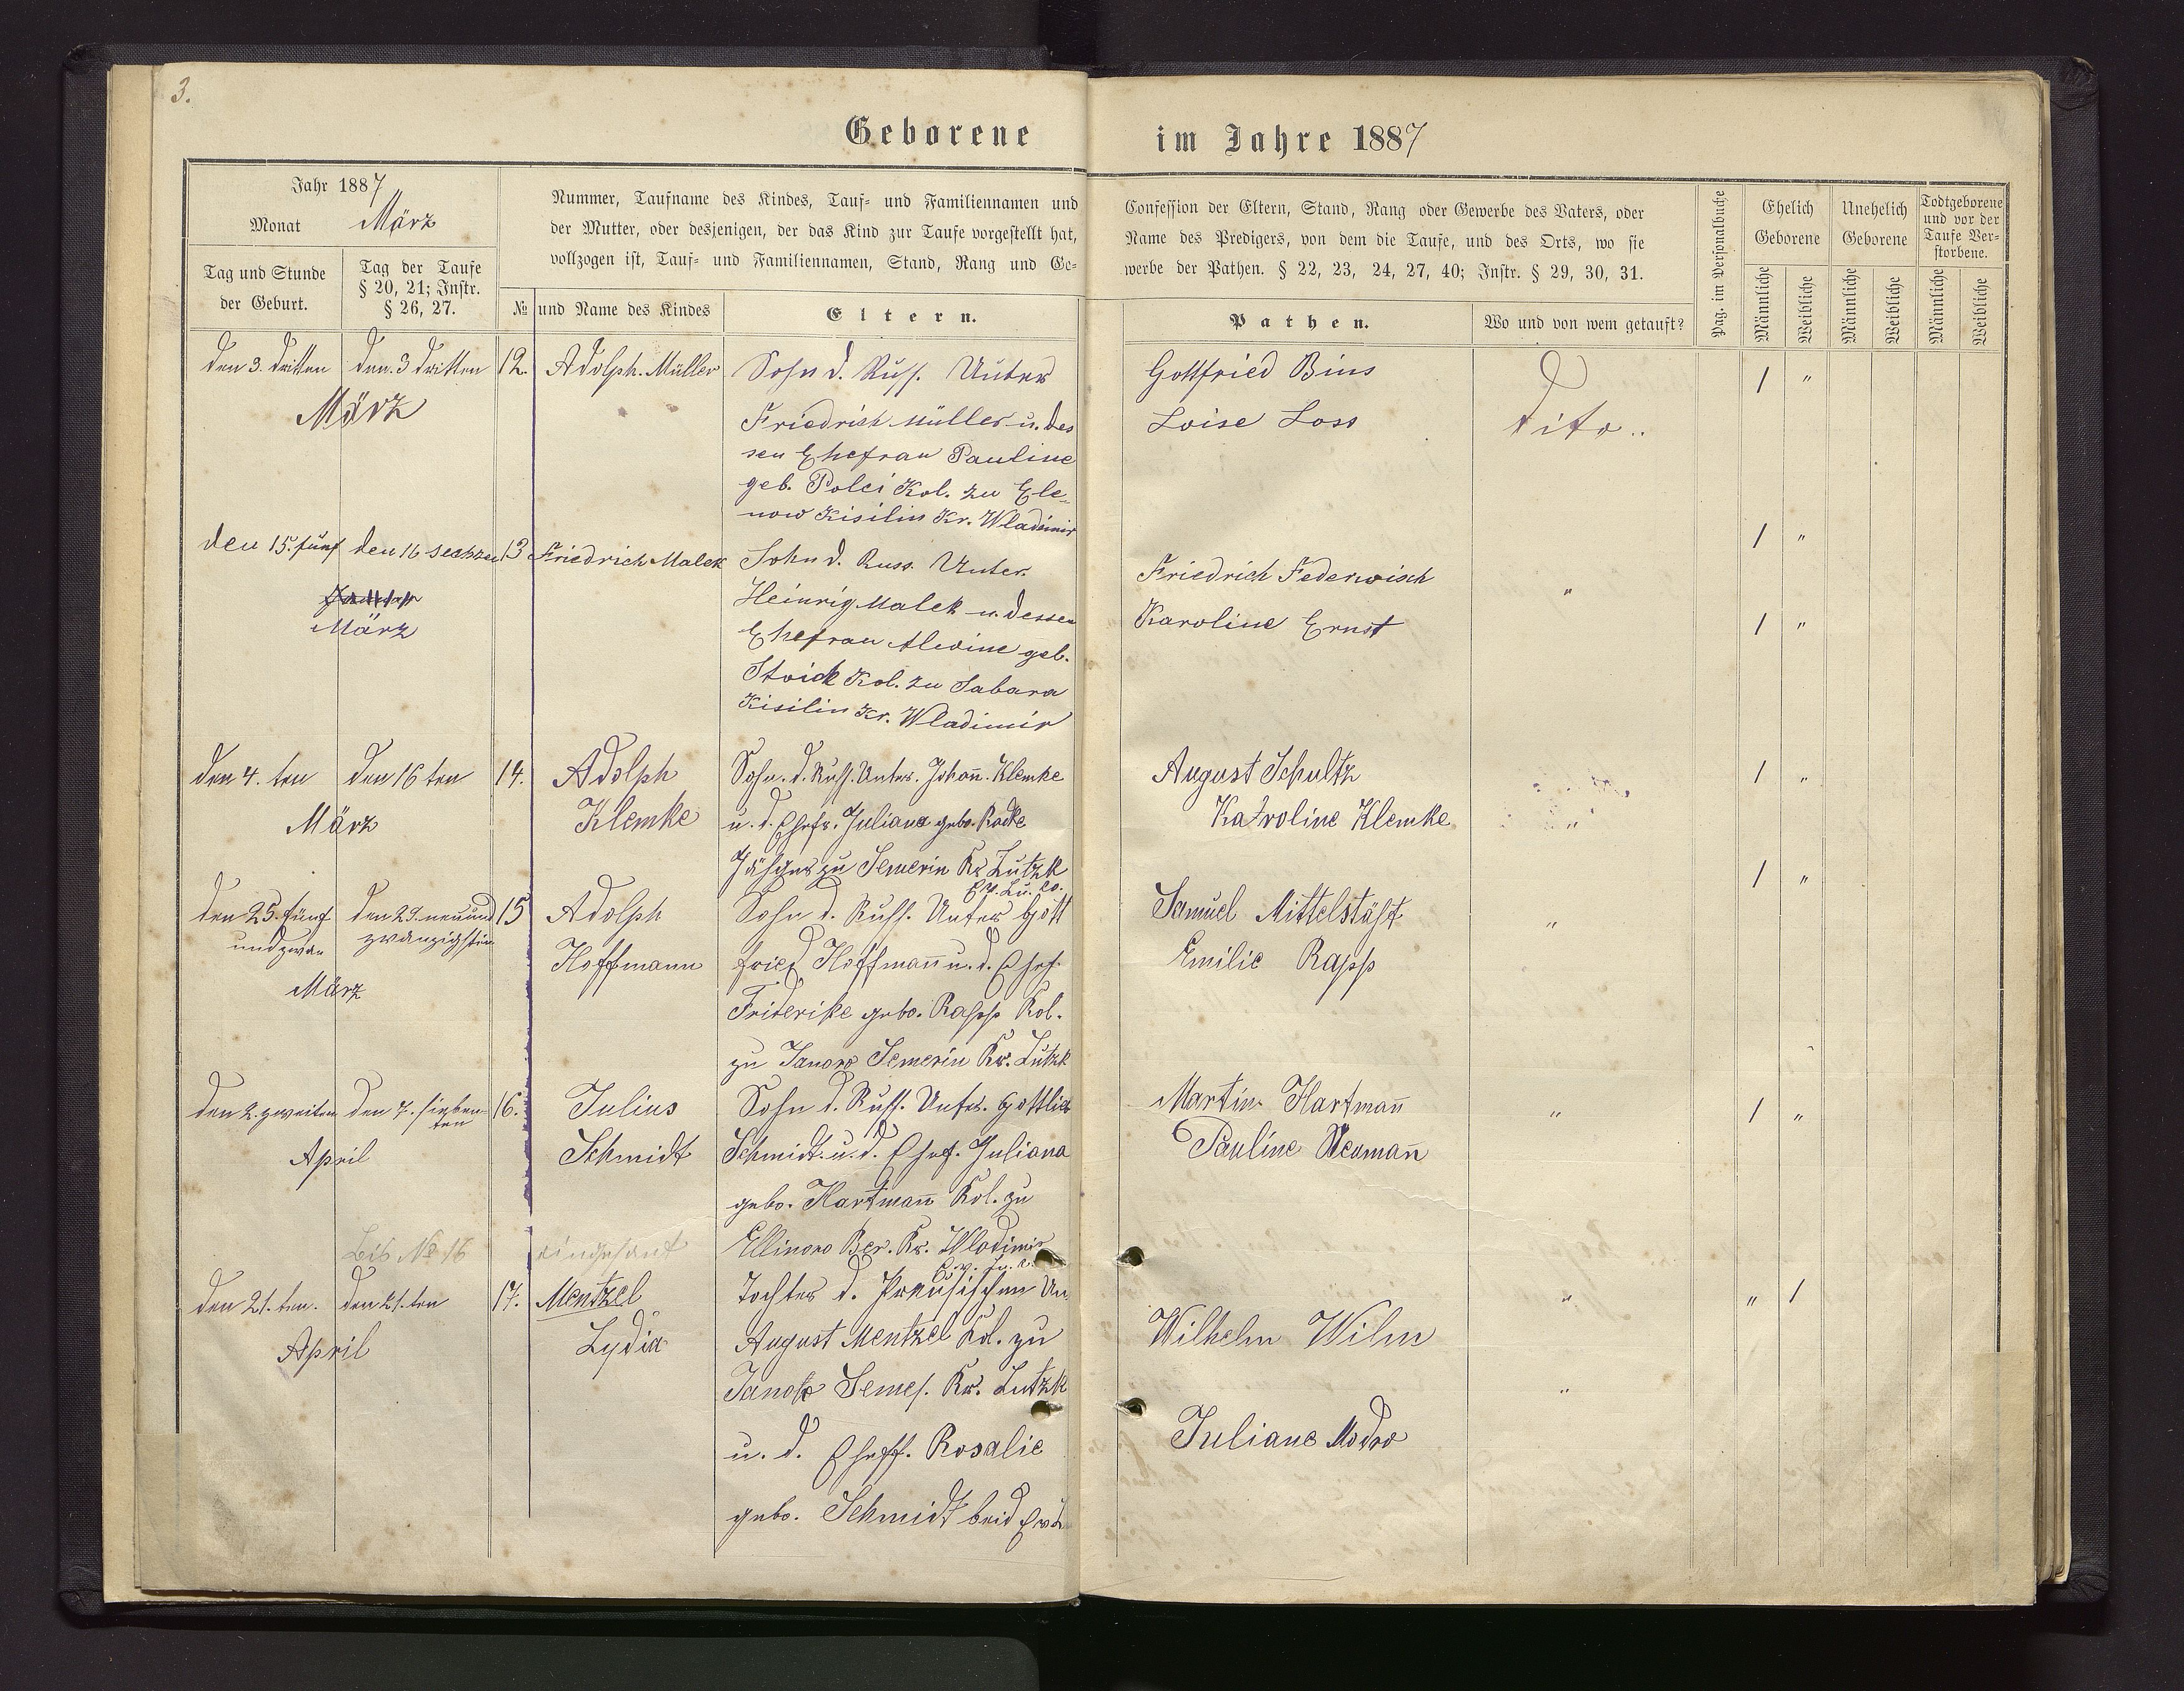 3.
Geborene im Jahre 1887
Jahr 1887
Monat März
Tag und Stunde
der Geburt.
Tag der Taufe
§ 20, 21; Instr.
§ 26, 27.
Nummer, Taufname des Kindes, Tauf- und Familiennamen und
der Mutter, oder desjenigen, der das Kind zur Taufe vorgestellt hat,
vollzogen ist, Tauf- und Familiennamen, Stand, Rang und Ge-
№ und Name des Kindes
Eltern.
Confession der Eltern, Stand, Rang oder Gewerbe des Vaters, oder
Name des Predigers, von dem die Taufe, und des Orts, wo sie
werbe der Pathen. § 22, 23, 24, 27, 40; Instr. § 29, 30, 31.
Pathen.
Wo und von wem getauft?
Pag. im Personalbuche
Ehelich
Geborene
Unehelich
Geborene
Todtgeborene
und vor der
Taufe Ver-
storbene.
Männliche Weibliche Männliche Weibliche Männliche Weibliche
den 3. dritten den. 3 dritten 12. Adolph. Müller
März
Sohn d. Russ. Unter
Friedrich Müller u. des
sen Ehefrau Pauline
geb. Polei Kol. zu Ele-
now Kisilin Kr. Wladimir
Gottfried Bins
Loise Loss
dito..
1 "
den 15. fünf den 16 sechzen 13 Friedrich Malek
März
Sohn d. Russ. Unter.
Heinrig Malek u. dessen
Ehefrau Alwine geb.
Stoick Kol. zu Sabara
Kisilin Kr. Wladimir
1 "
Friedrich Federwisch
Karoline Ernst
"
1 "
den 4. ten den 16 ten 14. Adolph
März Klemke
Sohn. d. Russ. Unter. Johañ. Klemke
u. d. Ehefr. Juliana gebo. Radke
zu Semerin Kr. Lutzk
August Schultz
Karoline Klemke
"
1 "
1 "
den 25. fünf den 29. neunund 15 Adolph
und zwan zwanzigsten
Hoffmann
März
Sohn d. Russ. Unter Gott
fried Hoffmañ u. d. Ehef.
Friderike gebo. Rapp Kol.
zu Janow Semerin Kr. Lutzk
Samuel Mittelstäft
Emilie Rapp
"
den 2. zweiten den 7. sieben- 16. Julius
ten
April Schmidt
Sohn d. Russ. Unter. Gottlieb
Schmidt u. d. Ehef. Juliana
gebo. Hartmañ Kol. zu
Ellinow Ber. Kr. Wladimir
Martin Hartmañ
Pauline Neumañ
"
1 "
Bis № 16 eingesant
den 21. ten. den 21. ten 17. Mentzel
April Lydia
Tochter d. Preusischen Un
August Mentzel Kol. zu
Janow Semer. Kr. Lutzk
u. d. Eheff. Rosalie
gebo. Schmidt beid
Wilhelm Wilm
Juliane Modro
"
"
" 1